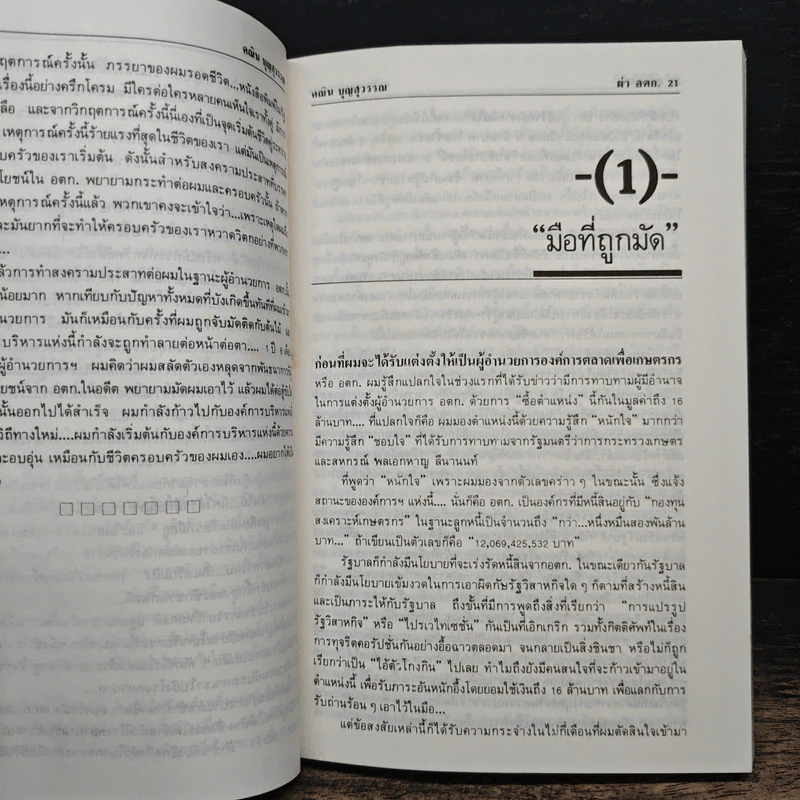 คณิน บุญสุวรรณ
ฤตการณ์ครั้งนั้น ภรรยาของผมรอดชีวิต...หนังสือพิมพ์
เรื่องนี้อย่างครึกโครม มีใครต่อใครหลายคนเห็นใจเรา
ลือ และจากวิกฤตการณ์ครั้งนี้นี่เองที่เป็นจุดเริ่มต้นชีวิต
เหตุการณ์ครั้งนี้ร้ายแรงที่สุดในชีวิตของเรา แต่มันเป็น
บครัวของเราเริ่มต้น ดังนั้นสำหรับสงครามประสาทที่
โยชน์ใน อตก. พยายามกระทำต่อผมและครอบครัวนั้น
หตุการณ์ครั้งนี้แล้ว พวกเขาคงจะเข้าใจว่า...เพราะเหตุใด
ะมันยากที่จะทำให้ครอบครัวของเราหวาดวิตกอย่างที่
....
ล้วการทำสงครามประสาทต่อผมในฐานะผู้อำนวยการ อตก.
น้อยมาก หากเทียบกับปัญหาทั้งหมดที่บังเกิดขึ้นทันทีที่ผม
นวยการ มันก็เหมือนกับครั้งที่ผมถูกจับมัดติดกับต้นไม้
ะบริหารแห่งนี้กำลังจะถูกทำลายต่อหน้าต่อตา.... 1 ปี 6
ผู้อำนวยการฯ ผมคิดว่าผมสลัดตัวเองหลุดจากพันธนาการ
ยชน์จาก อตก.ในอดีต พยายามมัดผมเอาไว้ แล้วผมได้ต่อสู้
นั้นออกไปได้สำเร็จ ผมกำลังก้าวไปกับองค์การบริหารแห่ง
วิถีทางใหม่....ผมกำลังเริ่มต้นกับองค์การบริหารแห่งนี้ด้วยความ
ะอบอุ่น เหมือนกับชีวิตครอบครัวของผมเอง....ผมอยากให้
□□□□□□□
คณิน บุญสุวรรณ ผ่า อตก. 21
-(1)-
“มือที่ถูกมัด”
ก่อนที่ผมจะได้รับแต่งตั้งให้เป็นผู้อำนวยการองค์การตลาดเพื่อเกษตรกร
หรือ อตก. ผมรู้สึกแปลกใจในช่วงแรกที่ได้รับข่าวว่ามีการทาบทามผู้มีอำนาจ
ในการแต่งตั้งผู้อำนวยการ อตก. ด้วยการ “ซื้อตำแหน่ง” นี้กันในมูลค่าถึง 16
ล้านบาท.... ที่แปลกใจก็คือ ผมมองตำแหน่งนี้ด้วยความรู้สึก “หนักใจ” มากกว่า
มีความรู้สึก “ชอบใจ” ที่ได้รับการทาบทามจากรัฐมนตรีว่าการกระทรวงเกษตร
และสหกรณ์ พลเอกหาญ ลีนานนท์
ที่พูดว่า “หนักใจ” เพราะผมมองจากตัวเลขคร่าว ๆ ในขณะนั้น ซึ่งแจ้ง
สถานะขององค์การฯ แห่งนี้.... นั่นก็คือ อตก. เป็นองค์กรที่มีหนี้สินอยู่กับ “กองทุน
สงเคราะห์เกษตรกร” ในฐานะลูกหนี้เป็นจำนวนถึง “กว่า...หนึ่งหมื่นสองพันล้าน
บาท...” ถ้าเขียนเป็นตัวเลขก็คือ “12,069,425,532 บาท”
รัฐบาลก็กำลังมีนโยบายที่จะเร่งรัดหนี้สินจากอตก. ในขณะเดียวกันรัฐบาล
ก็กำลังมีนโยบายเข้มงวดในการเอาผิดกับรัฐวิสาหกิจใด ๆ ก็ตามที่สร้างหนี้สิน
และเป็นภาระให้กับรัฐบาล ถึงขั้นที่มีการพูดถึงสิ่งที่เรียกว่า “การแปรรูป
รัฐวิสาหกิจ” หรือ “ไปรเวไทเซชั่น” กันเป็นที่เอิกเกริก รวมทั้งกิตติศัพท์ในเรื่อง
การทุจริตคอรัปชั่นกันอย่างอื้อฉาวตลอดมา จนกลายเป็นสิ่งชินชา หรือไม่ก็ถูก
เรียกว่าเป็น “ไอ้ตัวโกงกิน” ไปเลย ทำไมถึงยังมีคนสนใจที่จะก้าวเข้ามาอยู่ใน
ตำแหน่งนี้ เพื่อรับภาระอันหนักอึ้งโดยยอมใช้เงินถึง 16 ล้านบาท เพื่อแลกกับการ
รับถ่านร้อน ๆ เอาไว้ในมือ...
แต่ข้อสงสัยเหล่านี้ก็ได้รับความกระจ่างในไม่กี่เดือนที่ผมตัดสินใจเข้ามา